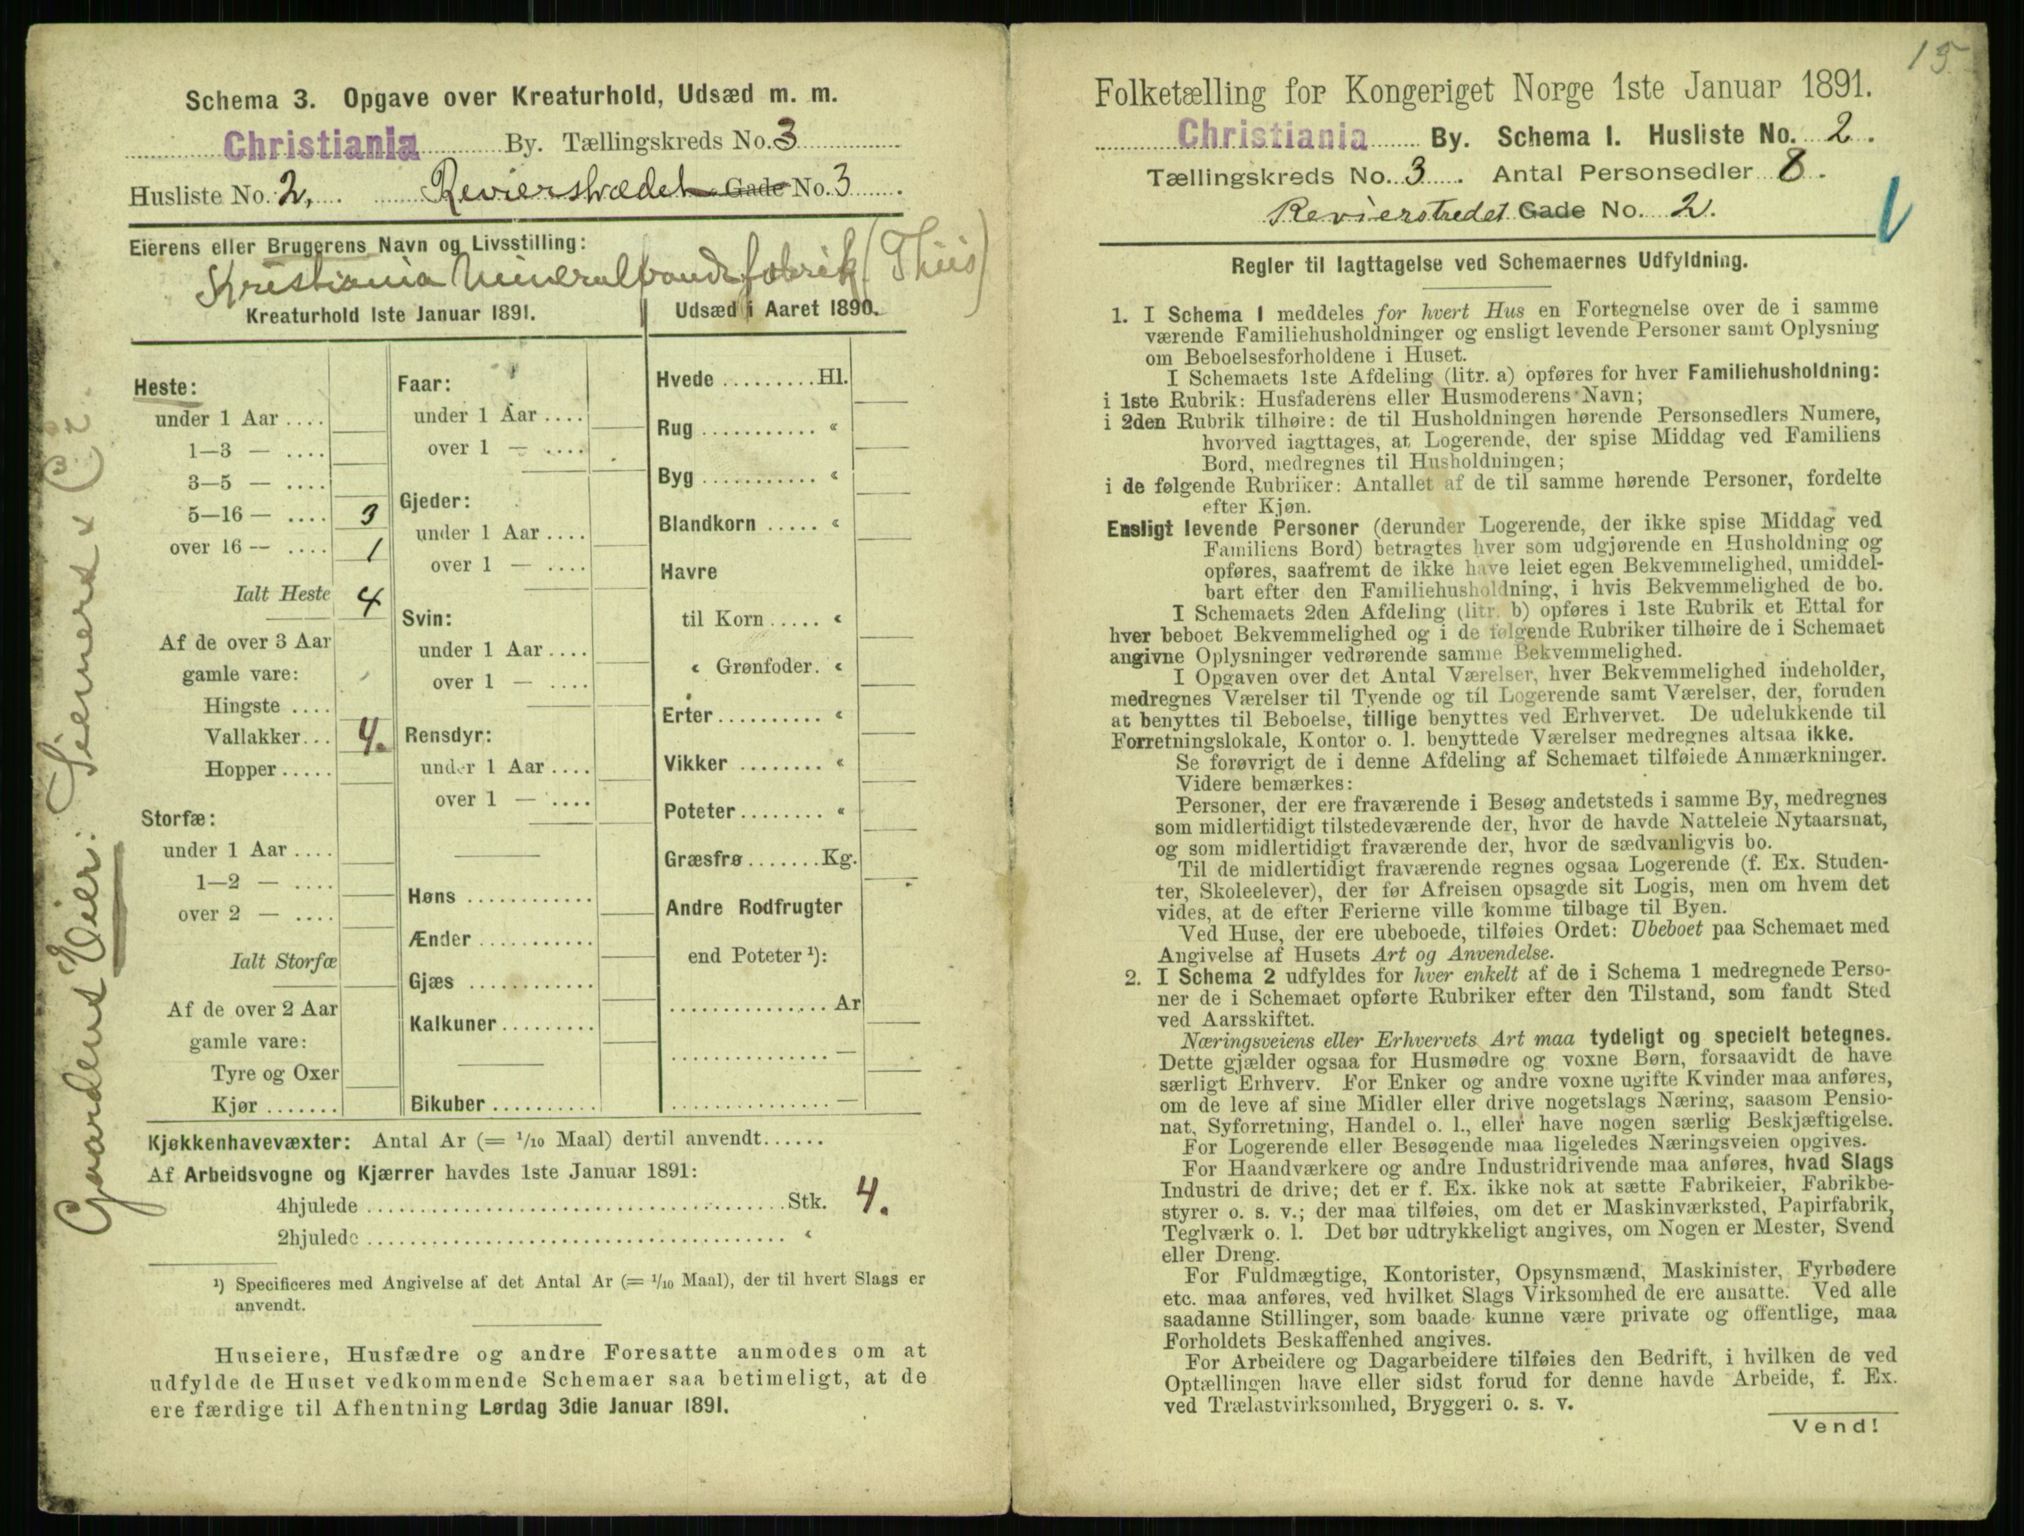 Schema 3. Opgave over Kreaturhold, Udsæd m. m.
Christiania By. Tællingskreds No. 3
Husliste No. 2, Revierstrædet Gade No. 3
Eierens eller Brugerens Navn og Livsstilling:
Kristiania Mineralvandsfabrik (Thiis)
Kreaturhold 1ste Januar 1891.
Heste:
under 1 Aar ....
1—3 — ....
3—5 — ....
5—16 — .... 3
over 16 — .... 1
Ialt Heste 4
Af de over 3 Aar
gamle vare:
Hingste ....
Vallakker... 4.
Hopper .....
Storfæ:
under 1 Aar ....
1—2 — ....
over 2 — ....
Ialt Storfæ
Af de over 2 Aar
gamle vare:
Tyre og Oxer
Kjør .......
Faar:
under 1 Aar ....
over 1 — ....
Gjeder:
under 1 Aar ....
over 1 — ....
Svin:
under 1 Aar ....
over 1 — ....
Rensdyr:
under 1 Aar ....
over 1 — ....
Høns ............
Ænder ...........
Gjæs ............
Kalkuner .........
Bikuber ..........
Udsæd i Aaret 1890.
Hvede ......... Hl.
Rug ........... «
Byg ........... «
Blandkorn ..... «
Havre
til Korn ..... «
« Grønfoder. «
Erter .......... «
Vikker ........ «
Poteter ........ «
Græsfrø ....... Kg.
Andre Rodfrugter
end Poteter ¹):
............... Ar
............... —
............... —
Kjøkkenhavevæxter: Antal Ar (= 1/10 Maal) dertil anvendt......
Af Arbeidsvogne og Kjærrer havdes 1ste Januar 1891:
4hjulede ........................................ Stk. 4.
2hjulede ........................................ «
¹) Specificeres med Angivelse af det Antal Ar (= 1/10 Maal), der til hvert Slags er
anvendt.
Huseiere, Husfædre og andre Foresatte anmodes om at
udfylde de Huset vedkommende Schemaer saa betimeligt, at de
ere færdige til Afhentning Lørdag 3die Januar 1891.
Gaardens Eier: Siemers & Co.
15
Folketælling for Kongeriget Norge 1ste Januar 1891.
Christiania By. Schema 1. Husliste No. 2.
Tællingskreds No. 3. Antal Personsedler 8.
Revierstredet Gade No. 2.
Regler til Iagttagelse ved Schemaernes Udfyldning.
1. I Schema 1 meddeles for hvert Hus en Fortegnelse over de i samme
værende Familiehusholdninger og ensligt levende Personer samt Oplysning
om Beboelsesforholdene i Huset.
I Schemaets 1ste Afdeling (litr. a) opføres for hver Familiehusholdning:
i 1ste Rubrik: Husfaderens eller Husmoderens Navn;
i 2den Rubrik tilhøire: de til Husholdningen hørende Personsedlers Numere,
hvorved iagttages, at Logerende, der spise Middag ved Familiens
Bord, medregnes til Husholdningen;
i de følgende Rubriker: Antallet af de til samme hørende Personer, fordelte
efter Kjøn.
Ensligt levende Personer (derunder Logerende, der ikke spise Middag ved
Familiens Bord) betragtes hver som udgjørende en Husholdning og
opføres, saafremt de ikke have leiet egen Bekvemmelighed, umiddel-
bart efter den Familiehusholdning, i hvis Bekvemmelighed de bo.
I Schemaets 2den Afdeling (litr. b) opføres i 1ste Rubrik et Ettal for
hver beboet Bekvemmelighed og i de følgende Rubriker tilhøire de i Schemaet
angivne Oplysninger vedrørende samme Bekvemmelighed.
I Opgaven over det Antal Værelser, hver Bekvemmelighed indeholder,
medregnes Værelser til Tyende og til Logerende samt Værelser, der, foruden
at benyttes til Beboelse, tillige benyttes ved Erhvervet. De udelukkende til
Forretningslokale, Kontor o. l. benyttede Værelser medregnes altsaa ikke.
Se forøvrigt de i denne Afdeling af Schemaet tilføiede Anmærkninger.
Videre bemærkes:
Personer, der ere fraværende i Besøg andetsteds i samme By, medregnes
som midlertidigt tilstedeværende der, hvor de havde Natteleie Nytaarsnat,
og som midlertidigt fraværende der, hvor de sædvanligvis bo.
Til de midlertidigt fraværende regnes ogsaa Logerende (f. Ex. Studen-
ter, Skoleelever), der før Afreisen opsagde sit Logis, men om hvem det
vides, at de efter Ferierne ville komme tilbage til Byen.
Ved Huse, der ere ubeboede, tilføies Ordet: Ubeboet paa Schemaet med
Angivelse af Husets Art og Anvendelse.
2. I Schema 2 udfyldes for hver enkelt af de i Schema 1 medregnede Perso-
ner de i Schemaet opførte Rubriker efter den Tilstand, som fandt Sted
ved Aarsskiftet.
Næringsveiens eller Erhvervets Art maa tydeligt og specielt betegnes.
Dette gjælder ogsaa for Husmødre og voxne Børn, forsaavidt de have
særligt Erhverv. For Enker og andre voxne ugifte Kvinder maa anføres,
om de leve af sine Midler eller drive nogetslags Næring, saasom Pensio-
nat, Syforretning, Handel o. l., eller have nogen særlig Beskjæftigelse.
For Logerende eller Besøgende maa ligeledes Næringsveien opgives.
For Haandværkere og andre Industridrivende maa anføres, hvad Slags
Industri de drive; det er f. Ex. ikke nok at sætte Fabrikeier, Fabrikbe-
styrer o. s. v.; der maa tilføies, om det er Maskinværksted, Papirfabrik,
Teglværk o. l. Det bør udtrykkeligt angives, om Nogen er Mester, Svend
eller Dreng.
For Fuldmægtige, Kontorister, Opsynsmænd, Maskinister, Fyrbødere
etc. maa anføres, ved hvilket Slags Virksomhed de ere ansatte. Ved alle
saadanne Stillinger, som baade kunne være private og offentlige, maa
Forholdets Beskaffenhed angives.
For Arbeidere og Dagarbeidere tilføies den Bedrift, i hvilken de ved
Optællingen have eller sidst forud for denne havde Arbeide, f. Ex.
ved Trælastvirksomhed, Bryggeri o. s. v.
Vend!